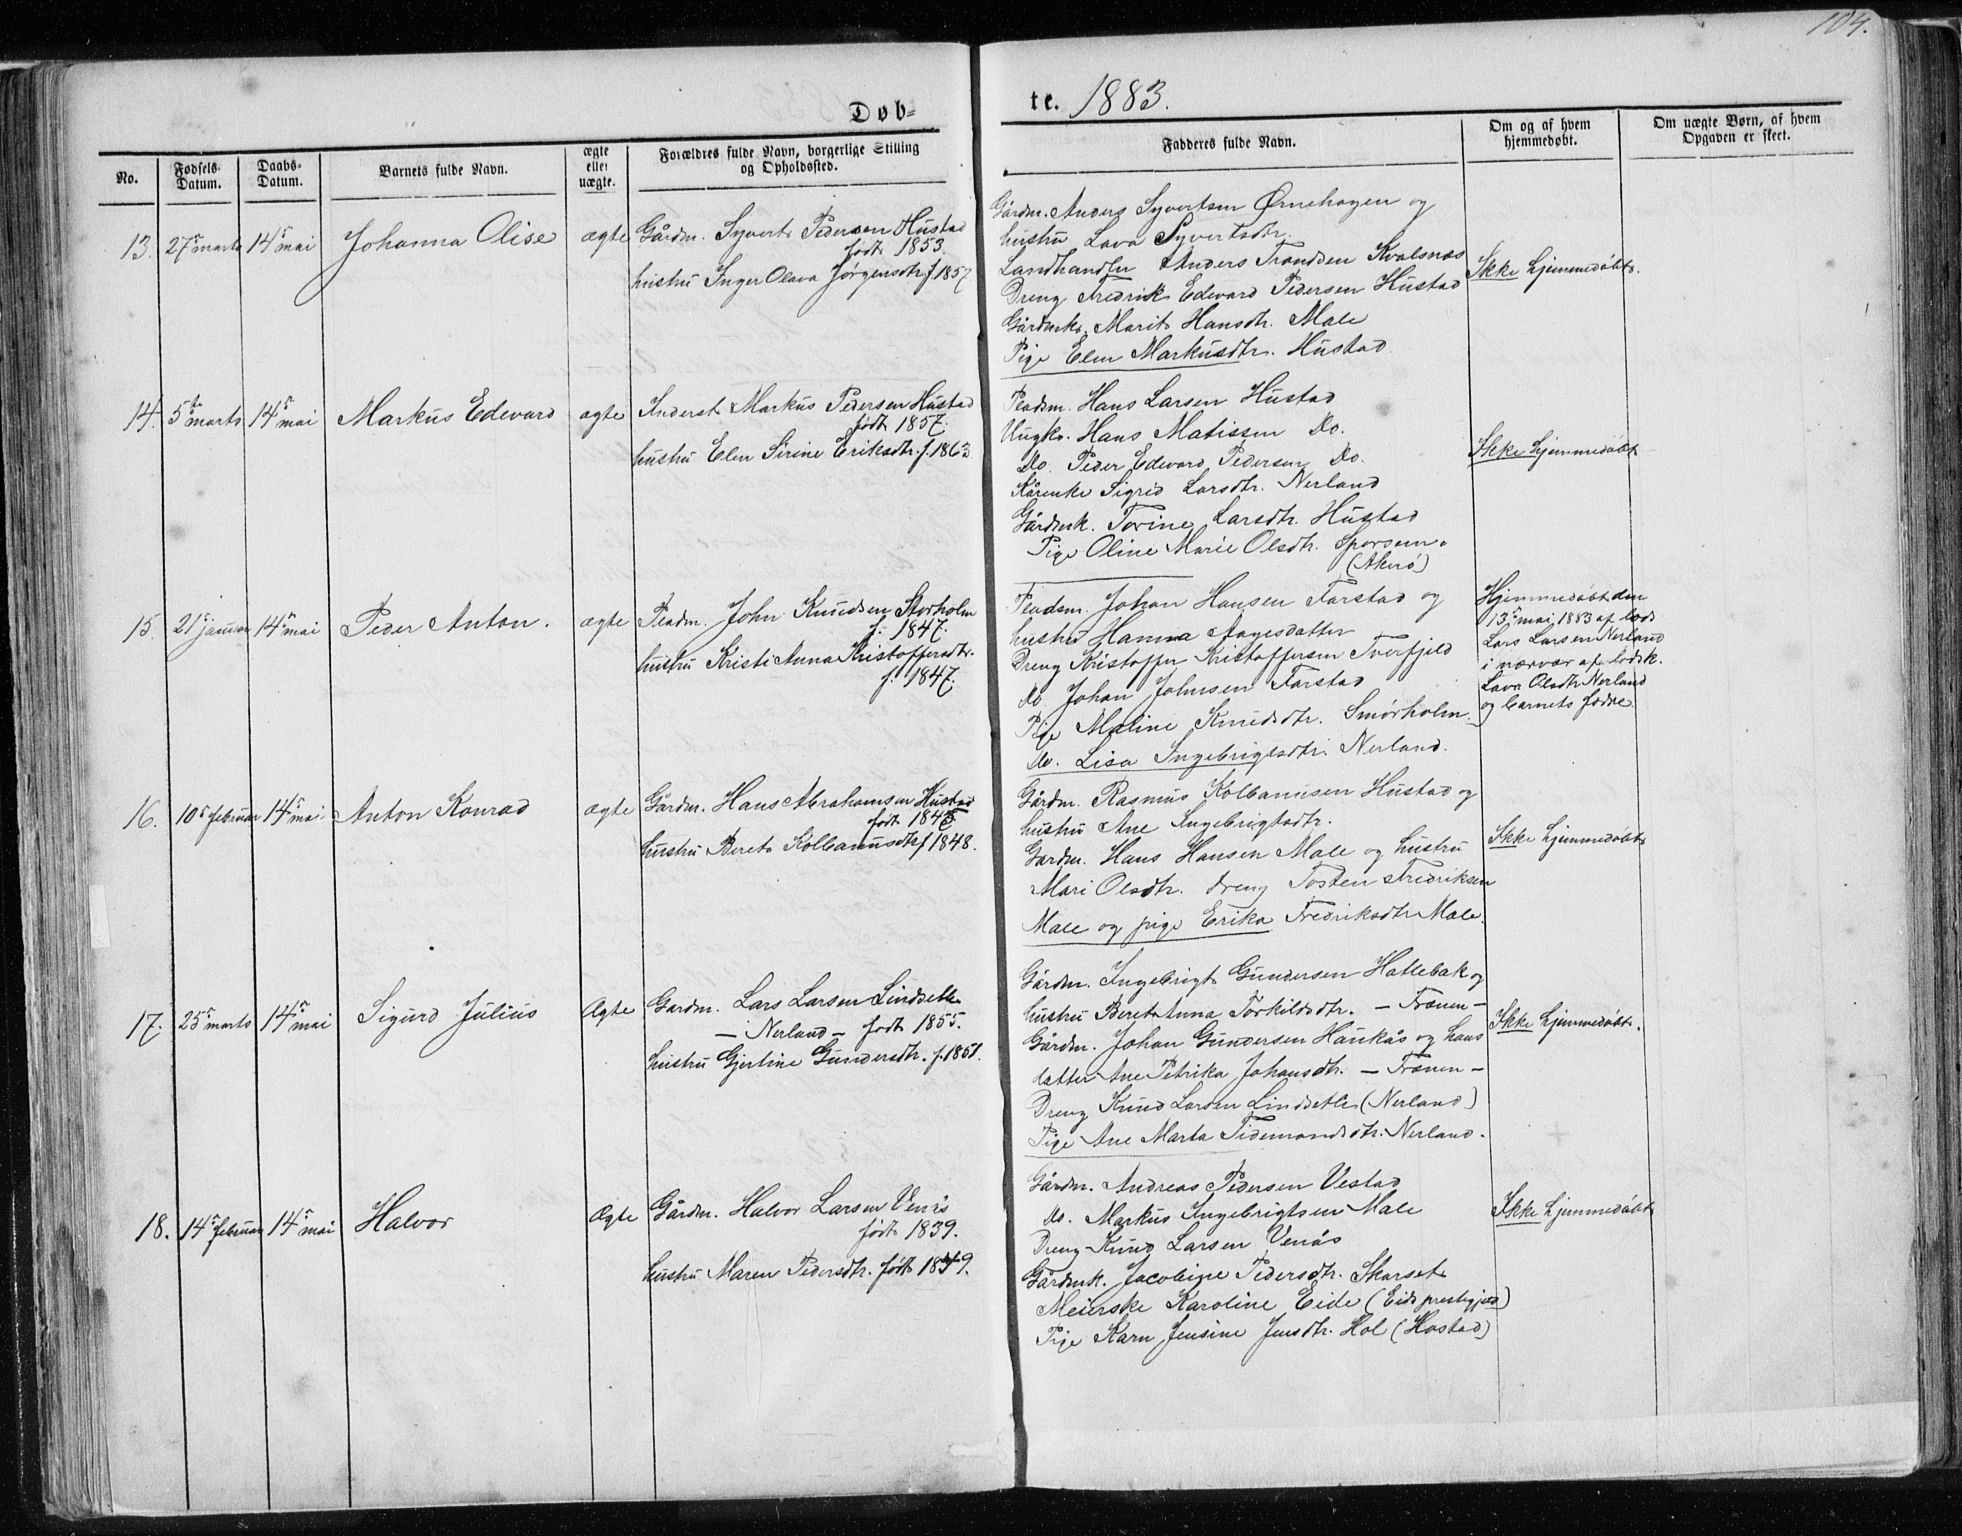 104.
Døb-
te. 1883.
No.
Fødsels-
Datum.
Daabs-
Datum.
Barnets fulde Navn.
ægte
eller
uægte.
Forældres fulde Navn, borgerlige Stilling
og Opholdssted.
Fadderes fulde Navn.
Om og af hvem
hjemmedøbt.
Om uægte Børn, af hvem
Opgaven er skeet.
13. 27 marts 14 mai Johanna Olise ægte
Gårdm. Syvert Pedersen Hustad
født 1853.
hustru Inger Olava Jørgensdtr f 1857.
Gårdm. Anders Syvertsen Ørnehagen og
hustru Lava Syvertsdtr.
Landhandler Anders Trondsen Kvalsnæs
Dreng Fredrik Edevard Pedersen Hustad
Gårdmk. Marit Hansdtr. Male
Pige Elen Markusdtr. Hustad
Ikke hjemmedøbt.
14. 5te marts 14 mai Markus Edevard ægte
Inderst Markus Pedersen Hustad
født 1857.
hustru Elen Sirine Eriksdtr. f. 1863
Pladsm. Hans Larsen Hustad
Ungk. Hans Matissen Do.
Do. Peder Edevard Pedersen Do.
Kårenke Sigrid Larsdtr. Nerland
Gårdmk. Torine Larsdtr. Hustad
Pige Oline Marie Olsdtr. Sporsem.
(Akerø)
Ikke hjemmedøbt
15. 21 januar 14 mai Peder Anton. ægte
Pladsm. John Knudsen Storholm
f. 1847.
hustru Kristi Anna Kristoffersdtr.
f. 1847.
Pladsm. Johan Hansen Farstad og
hustru Hanna Aagesdatter
Dreng Kristoffer Kristoffersen Tverfjeld
do. Johan Johnsen Farstad
Pige Maline Knudsdtr. Smørholm.
do. Lisa Ingebrigtsdtr. Nerland.
Hjemmedøbt den
13 mai 1883 af lods
Lars Larsen Nerland
i nærvær af lodsk.
Lava Olsdtr Nerland
og barnets fædre.
16. 10 februar 14 mai Anton Konrad ægte
Gårdm. Hans Abrahamsen Hustad
født 1845
hustru Beret Kolbanusdtr f 1848.
Gårdm. Rasmus Kolbanusen Hustad og
hustru Ane Ingebrigtsdtr.
Gardm. Hans Hansen Male og hustru
Mari Olsdtr. Dreng Tosten Fredriksen
Male og pige Erika Fredriksdtr Male.
Ikke hjemmedøbt
17. 25 marts 14 mai Sigurd Julius Ægte
Gardm. Lars Larsen Lindsetle
— Nerland — født 1855.
hustru Gjertine Gundersdtr. f. 1851.
Gårdm. Ingebrigt Gundersen Hatlebak og
hustru Beret Anna Torkildsdtr. — Frænen —
Gårdm. Johan Gundersen Haukås og hans
datter Ane Petrika Johansdtr. — Frænen —
Dreng Knud Larsen Lindsetle (Nerland)
Pige Ane Marta Tidemandsdtr. Nerland.
Ikke hjemmedøbt.
18. 14 februar 14 mai Halvor Ægte
Gårdm. Halvor Larsen Venås
født 1839.
hustru Maren Pedersdtr. født 1849.
Gårdm. Andreas Pedersen Vestad
do. Markus Ingebrigtsen Male
Dreng Knud Larsen Venås
Gårdmk. Jacobine Pedersdtr. Skarset
Meierske Karoline Eide (Eids prestegjæld)
Pige Karn Jensine Jensdtr. Hol (Hostad)
Ikke hjemmedøbt